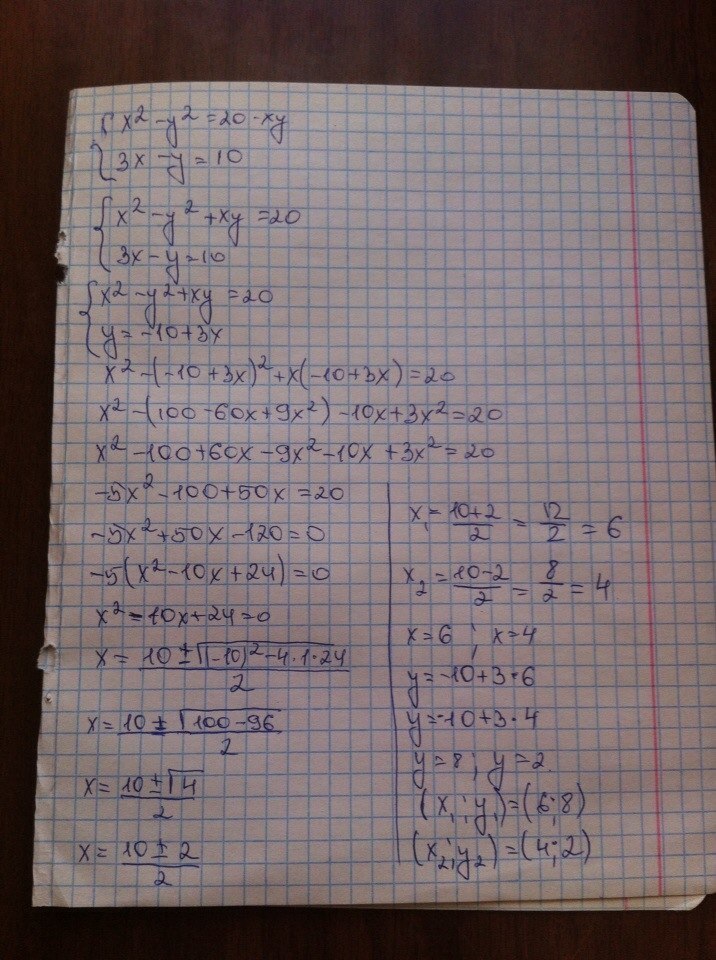 { x² - y² = 20 - xy
{ 3x - y = 10
{ x² - y² + xy = 20
{ 3x - y = 10
{ x² - y² + xy = 20
{ y = -10 + 3x
x² - (-10 + 3x)² + x(-10 + 3x) = 20
x² - (100 - 60x + 9x²) - 10x + 3x² = 20
x² - 100 + 60x - 9x² - 10x + 3x² = 20
-5x² - 100 + 50x = 20
-5x² + 50x - 120 = 0
-5(x² - 10x + 24) = 0
x² - 10x + 24 = 0
x = (10 ± √((-10)² - 4·1·24))/2
x = (10 ± √(100 - 96))/2
x = (10 ± √4)/2
x = (10 ± 2)/2
x₁ = (10+2)/2 = 12/2 = 6
x₂ = (10-2)/2 = 8/2 = 4
x = 6 ; x = 4
y = -10 + 3·6
y = -10 + 3·4
y = 8 ; y = 2
(x₁; y₁) = (6; 8)
(x₂; y₂) = (4; 2)